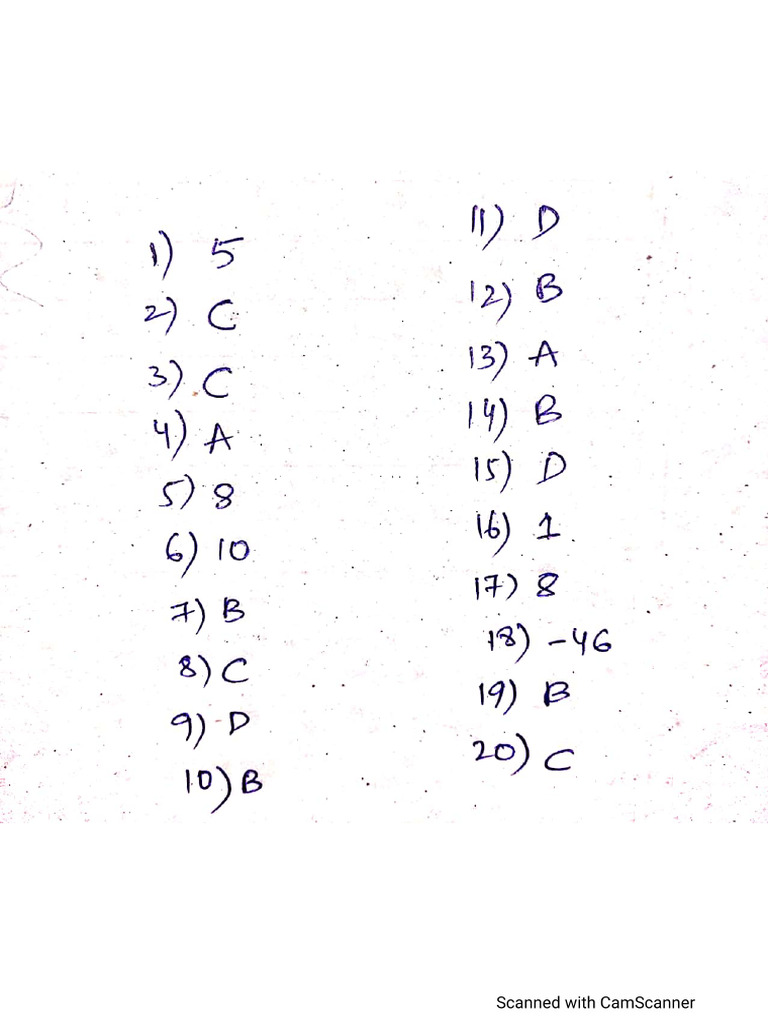 1) 5
2) C
3) C
4) A
5) 8
6) 10
7) B
8) C
9) D
10) B
11) D
12) B
13) A
14) B
15) D
16) 1
17) 8
18) -46
19) B
20) C
Scanned with CamScanner